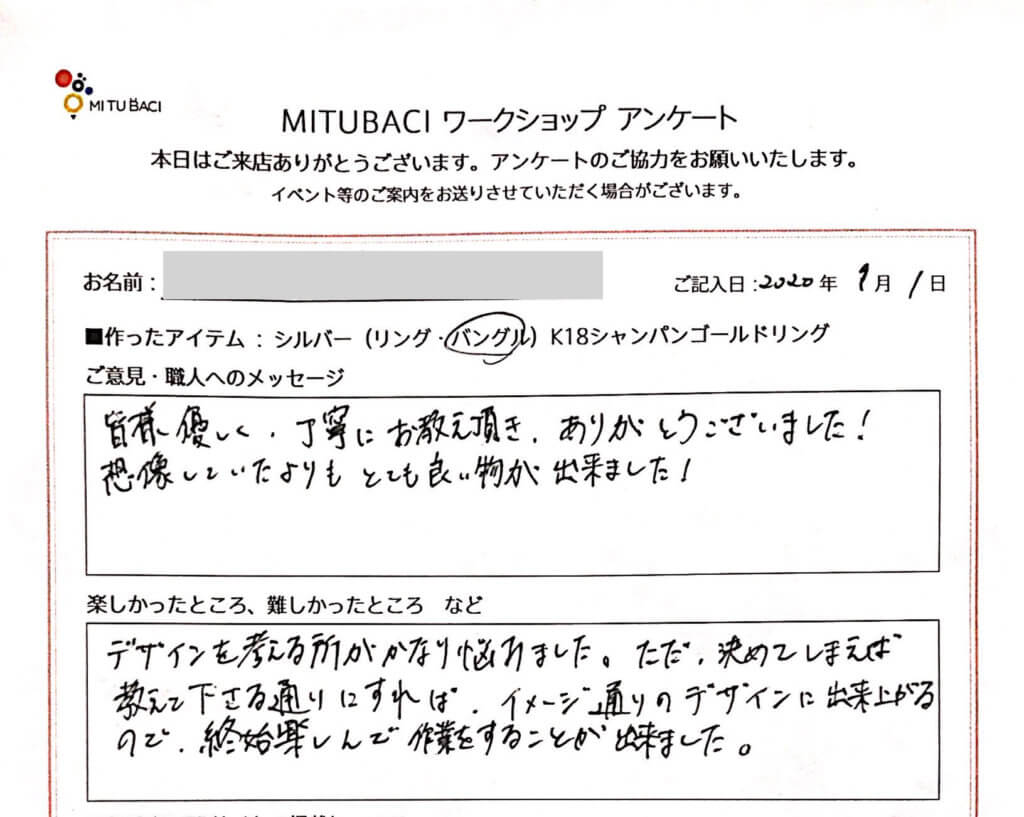 MITUBACI
MITUBACI ワークショップ アンケート
本日はご来店ありがとうございます。アンケートのご協力をお願いいたします。
イベント等のご案内をお送りさせていただく場合がございます。
お名前： ご記入日：2020年 9月 1日
■作ったアイテム ： シルバー （リング・バングル） K18シャンパンゴールドリング
ご意見・職人へのメッセージ
皆様優しく、丁寧にお教え頂き、ありがとうございました！
想像していたよりもとても良い物が出来ました！
楽しかったところ、難しかったところ など
デザインを考える所がかなり悩みました。ただ、決めてしまえば
教えて下さる通りにすれば、イメージ通りのデザインに出来上がる
ので、終始楽しんで作業をすることが出来ました。